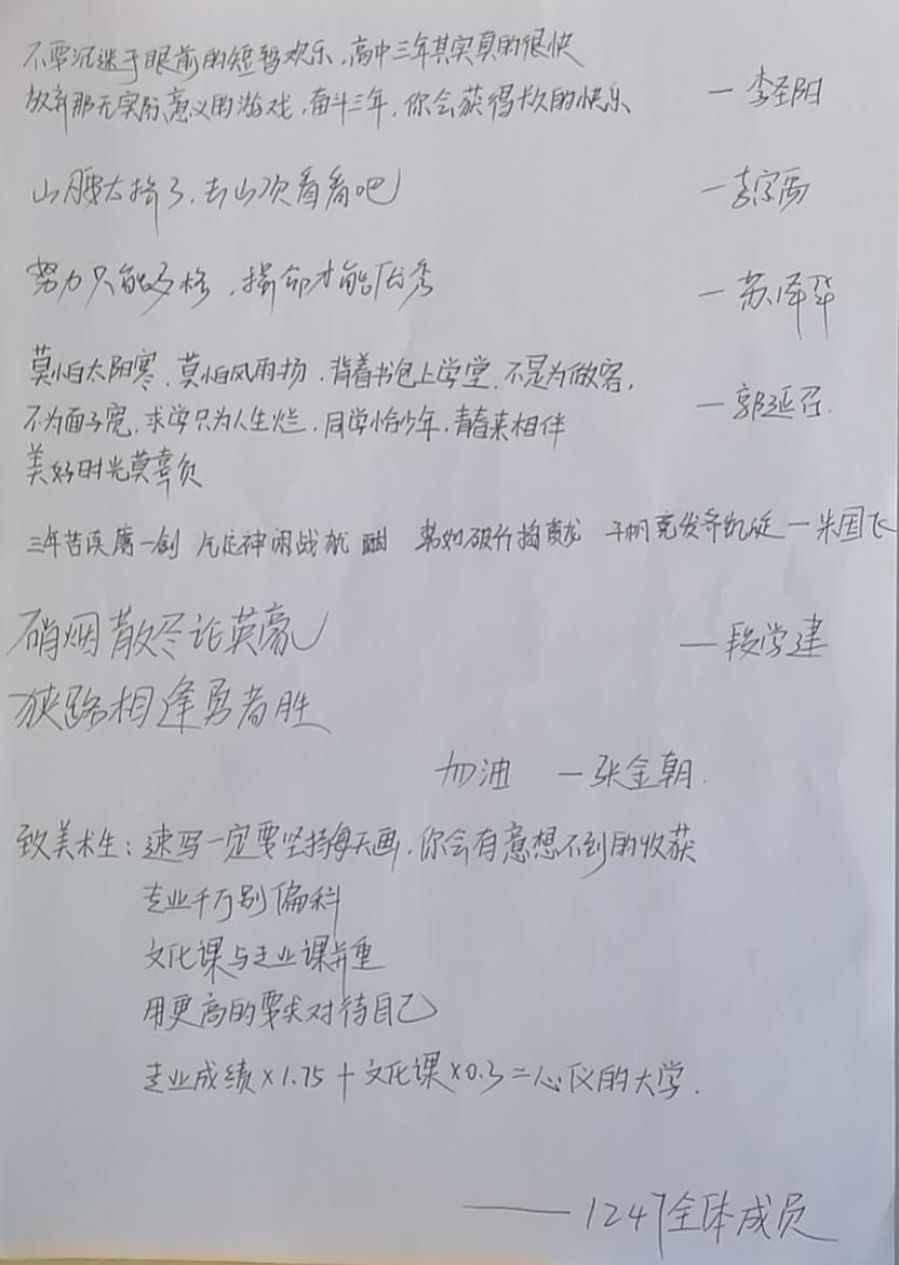 不要沉迷于眼前的短暂欢乐，高中三年其实真的很快
放弃那无实际意义的游戏，奋斗三年，你会获得长久的快乐 — 李圣阳
山腰太挤了，去山顶看看吧 — 李宗西
努力只能及格，拼命才能优秀 — 苏泽华
莫怕太阳寒，莫怕风雨扬，背着书包上学堂，不是为做客，
不为面子宽，求学只为人生烂，同学恰少年，青春来相伴 — 郭延召
美好时光莫辜负
三年苦读磨一剑 气定神闲战犹酣 势如破竹捣黄龙 千帆竞发齐凯旋 — 朱国飞
硝烟散尽论英豪 — 段学建
狭路相逢勇者胜
加油 — 张金朝.
致美术生：速写一定要坚持每天画，你会有意想不到的收获
专业千万别偏科
文化课与专业课并重
用更高的要求对待自己
专业成绩×1.75+文化课×0.3=心仪的大学.
—— 1247全体成员